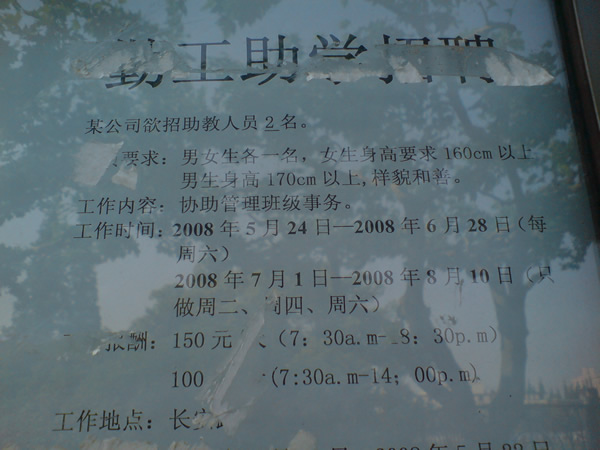 勤工助学招聘
某公司欲招助教人员2名。
要求：男女生各一名，女生身高要求160cm以上
男生身高170cm以上,样貌和善。
工作内容：协助管理班级事务。
工作时间：2008年5月24日—2008年6月28日（每
周六）
2008年7月1日—2008年8月10日（只
做周二、周四、周六）
报酬：150元 （7：30a.m-8：30p.m）
100 (7:30a.m-14；00p.m)
工作地点：长安